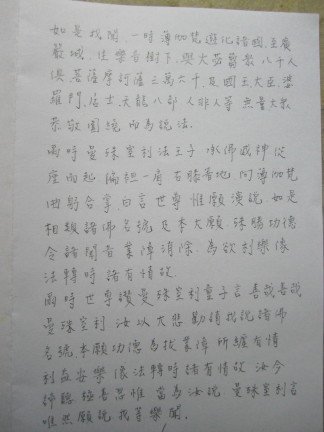 如是我聞．一時薄伽梵遊化諸國．至廣
嚴城．住樂音樹下．與大苾芻眾八千人
俱菩薩摩訶薩三萬六千．及國王．大臣．婆
羅門．居士．天龍八部．人非人等．無量大眾
恭敬圍繞．而為說法．
爾時曼殊室利法王子．承佛威神．從
座而起．偏袒一肩．右膝著地．向薄伽梵
曲躬合掌．白言世尊．惟願演說．如是
相類諸佛名號．及本大願．殊勝功德
令諸聞者業障消除．為欲利樂像
法轉時諸有情故
爾時世尊讚曼殊室利童子言善哉善哉
曼殊室利．汝以大悲勸請我說諸佛
名號．本願功德．為拔業障．所纏有情．
利益安樂．像法轉時諸有情故．汝今
諦聽．極善思惟．當為汝說．曼殊室利言
唯然願說．我等樂聞．